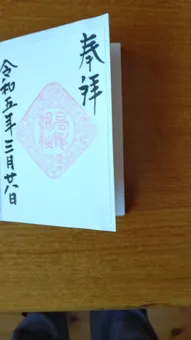 奉拝
令和五年三月廿八日